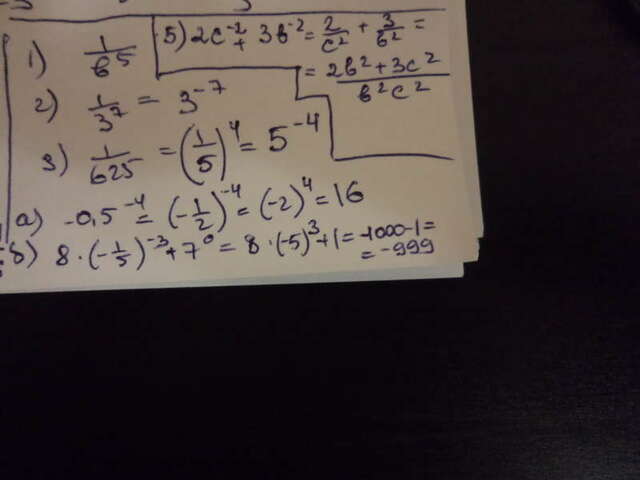 1) 1/в⁵
5) 2c⁻² + 3в⁻² = 2/c² + 3/в² =
= (2в² + 3c²)/(в²c²)
2) 1/3⁷ = 3⁻⁷
3) 1/625 = (1/5)⁴ = 5⁻⁴
а) -0,5⁻⁴ = (-1/2)⁻⁴ = (-2)⁴ = 16
б) 8·(-1/5)⁻³ + 7⁰ = 8·(-5)³ + 1 = -1000-1 =
= -999